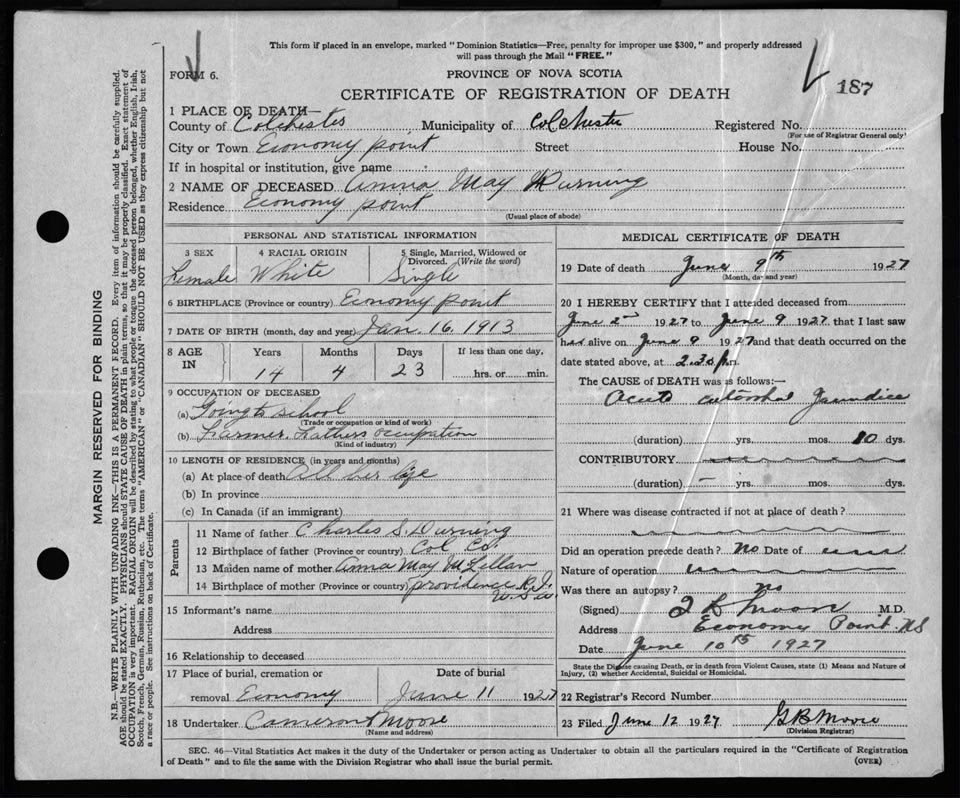 This form if placed in an envelope, marked "Dominion Statistics—Free, penalty for improper use $300," and properly addressed
will pass through the Mail "FREE."
FORM 6.
PROVINCE OF NOVA SCOTIA
187
CERTIFICATE OF REGISTRATION OF DEATH
1 PLACE OF DEATH—
County of Colchester Municipality of Colchester Registered No.
(For use of Registrar General only)
City or Town Economy point Street House No.
If in hospital or institution, give name
2 NAME OF DECEASED Anna May Durning
Residence Economy point
(Usual place of abode)
PERSONAL AND STATISTICAL INFORMATION
3 SEX 4 RACIAL ORIGIN 5 Single, Married, Widowed or Divorced. (Write the word)
Female White Single
6 BIRTHPLACE (Province or country) Economy point
7 DATE OF BIRTH (month, day and year) Jan. 16. 1913
8 AGE IN Years Months Days If less than one day,
14 4 23 hrs. or min.
9 OCCUPATION OF DECEASED
(a) Going to school
(Trade or occupation or kind of work)
(b) Farmer. Fathers occupation
(Kind of industry)
10 LENGTH OF RESIDENCE (in years and months)
(a) At place of death All her life
(b) In province
(c) In Canada (if an immigrant)
Parents
11 Name of father Charles S. Durning
12 Birthplace of father (Province or country) Col. Co.
13 Maiden name of mother Anna May McLellan
14 Birthplace of mother (Province or country) providence R.I.
U.S.A.
15 Informant's name
Address
16 Relationship to deceased
17 Place of burial, cremation or Date of burial
removal Economy June 11 1927
18 Undertaker Cameron Moore
(Name and address)
MEDICAL CERTIFICATE OF DEATH
19 Date of death June 9th 1927
(Month, day and year)
20 I HEREBY CERTIFY that I attended deceased from
June 2 1927 to June 9 1927 that I last saw
her alive on June 9 1927 and that death occurred on the
date stated above, at 2.30 p.
The CAUSE OF DEATH was as follows:—
Acute catarrhal Jaundice
(duration) yrs. mos. 10 dys.
CONTRIBUTORY
(duration) — yrs. mos. dys.
21 Where was disease contracted if not at place of death?
Did an operation precede death? No Date of
Nature of operation
Was there an autopsy? no
(Signed) Moore M.D.
Address Economy Point NS
Date June 10th 1927
State the Disease causing Death, or in death from Violent Causes, state (1) Means and Nature of
Injury, (2) whether Accidental, Suicidal or Homicidal.
22 Registrar's Record Number
23 Filed June 12 1927 G B Moore
(Division Registrar)
SEC. 46—Vital Statistics Act makes it the duty of the Undertaker or person acting as Undertaker to obtain all the particulars required in the "Certificate of Registration
of Death" and to file the same with the Division Registrar who shall issue the burial permit. (OVER)
MARGIN RESERVED FOR BINDING
N.B.—WRITE PLAINLY WITH UNFADING INK—THIS IS A PERMANENT RECORD. Every item of information should be carefully supplied.
AGE should be stated EXACTLY. PHYSICIANS should STATE CAUSE OF DEATH in plain terms, so that it may be properly classified. Exact statement of
OCCUPATION is very important. RACIAL ORIGIN will be described by stating to what people or tongue the deceased person belonged, whether English, Irish,
Scotch, French, German, Russian, Ruthenian, etc. The terms "AMERICAN" or "CANADIAN" SHOULD NOT BE USED as they express citizenship but not
a race or people. See instructions on back of Certificate.